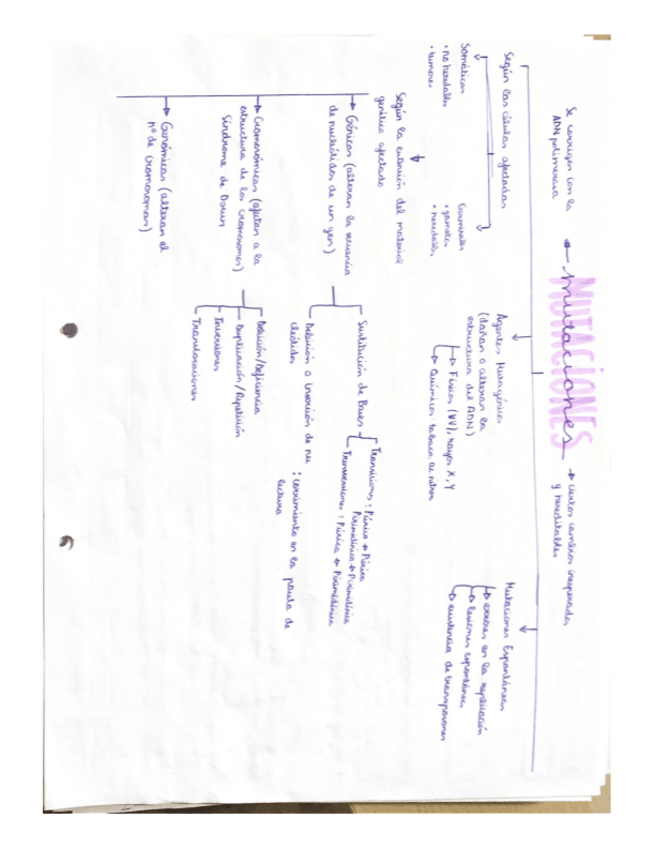 Se corrigen con la
ADN polimerasa
MUTACIONES
mutaciones
ciertos cambios inesperados
y heredables
Según las células afectadas
Somáticas
• no heredables
• tumores
Germinales
• gametos
• heredables
Agentes Mutagénicos
(dañan o alteran la
estructura del ADN)
Físicos (UV), rayos X, Y
Químicos tabaco,
Mutaciones Espontáneas
errores en la replicación
lesiones espontáneas
existencia de transposones
Según la extensión del material
genético afectado
Génicas (alteran la secuencia
de nucleótidos de un gen)
Sustitución de Bases
Transiciones: Púrica → Púrica
Pirimidínica → Pirimidínica
Transversiones: Púrica ↔ Pirimidínica
Delección o inserción de nu
cleótidos
: corrimiento en la pauta de
lectura
Cromosómicas (afectan a la
estructura de los cromosomas)
Síndrome de Down
Delección/Deficiencia
Duplicación/Repetición
Inversiones
Translocaciones
Genómicas (alteran el
nº de cromosomas)